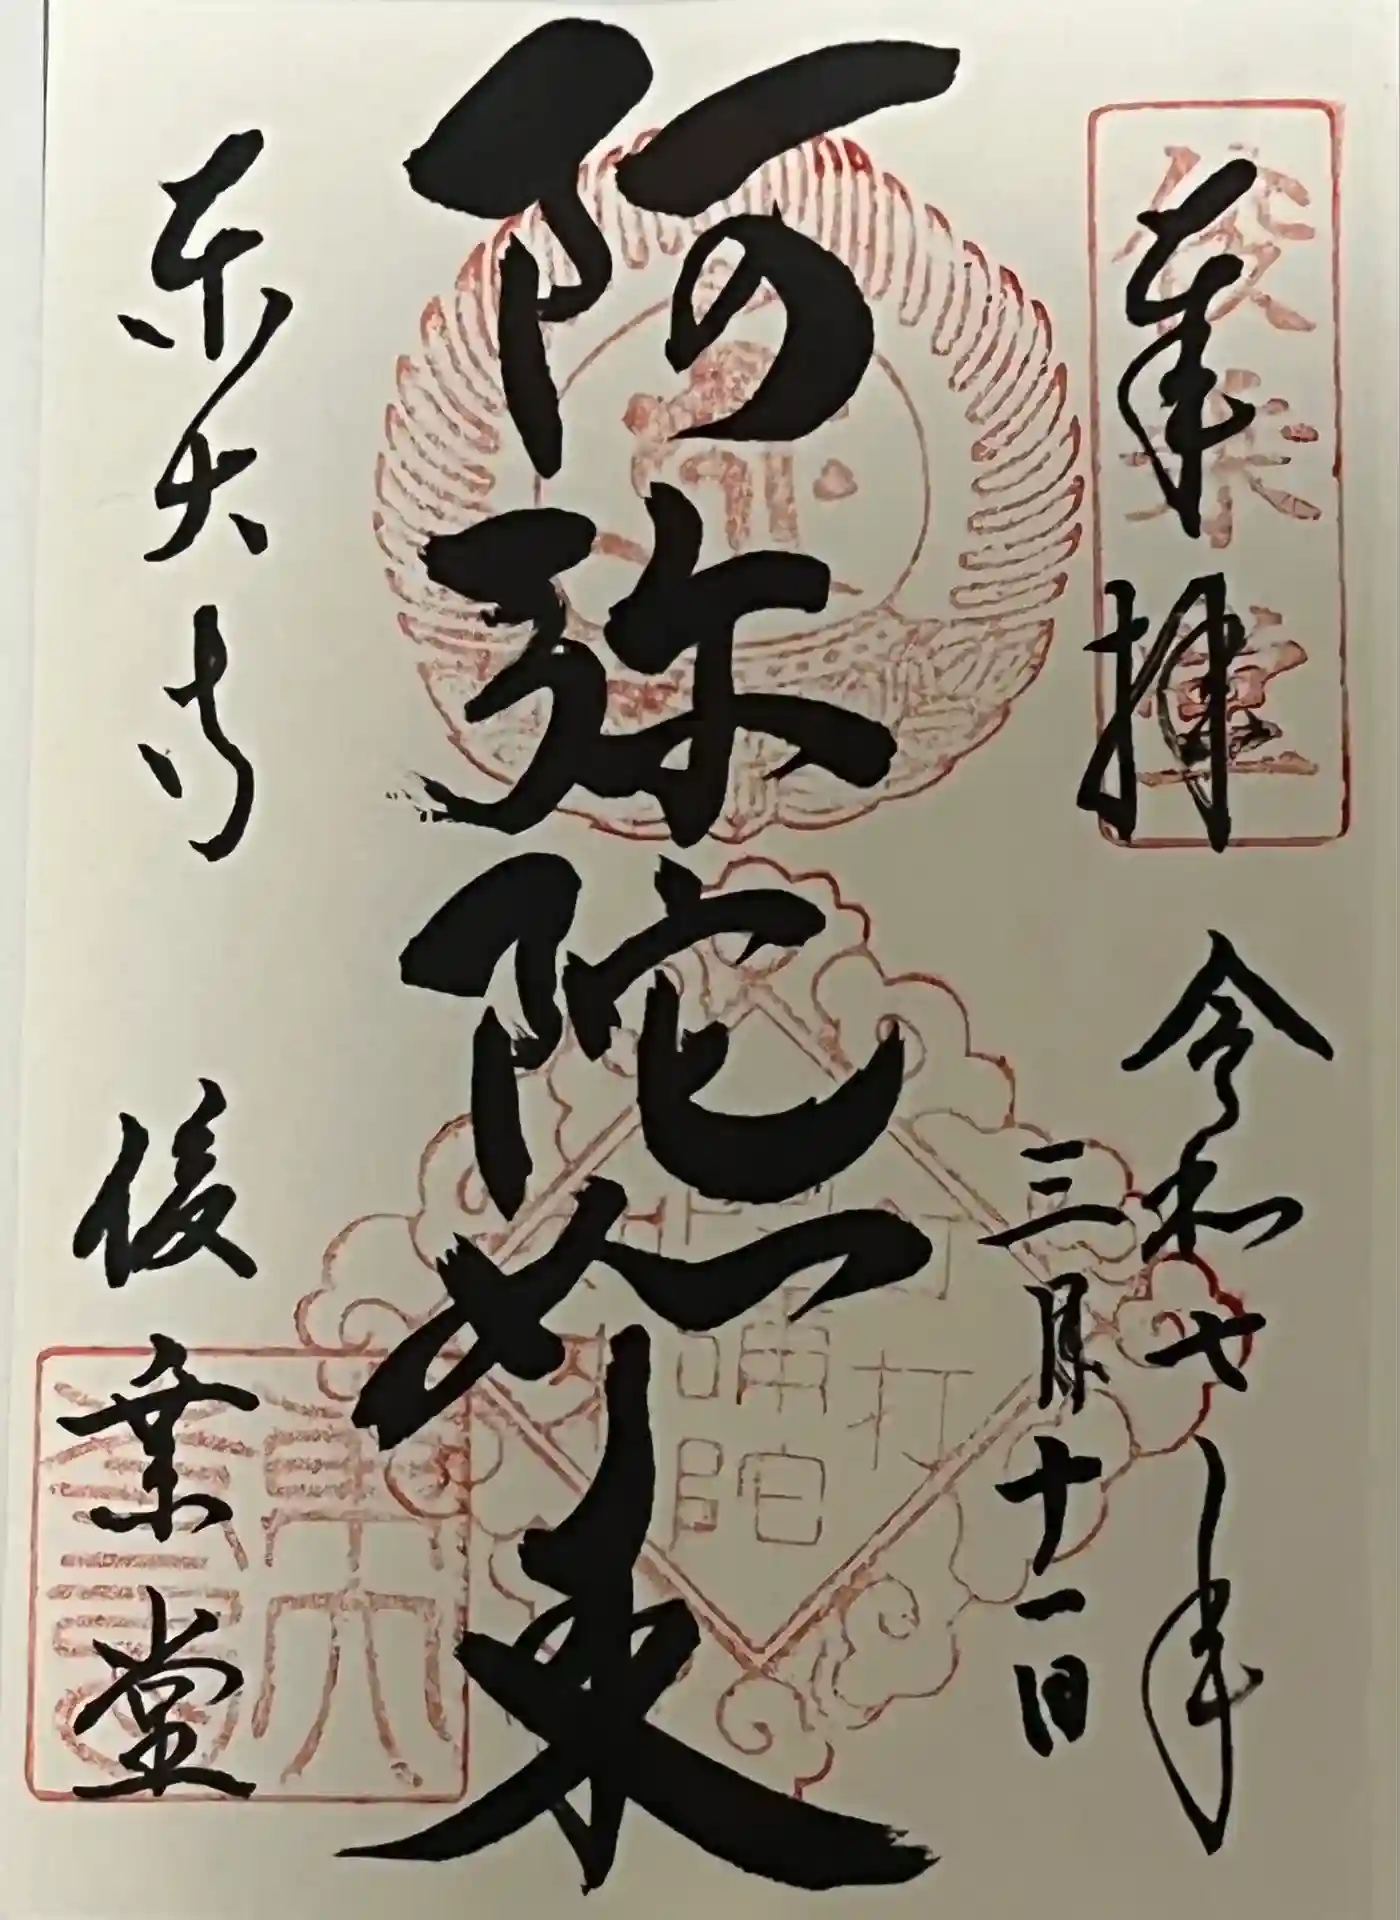 奉拝
令和七年
三月十一日
阿弥陀如来
東大寺
俊乗堂
俊乗堂